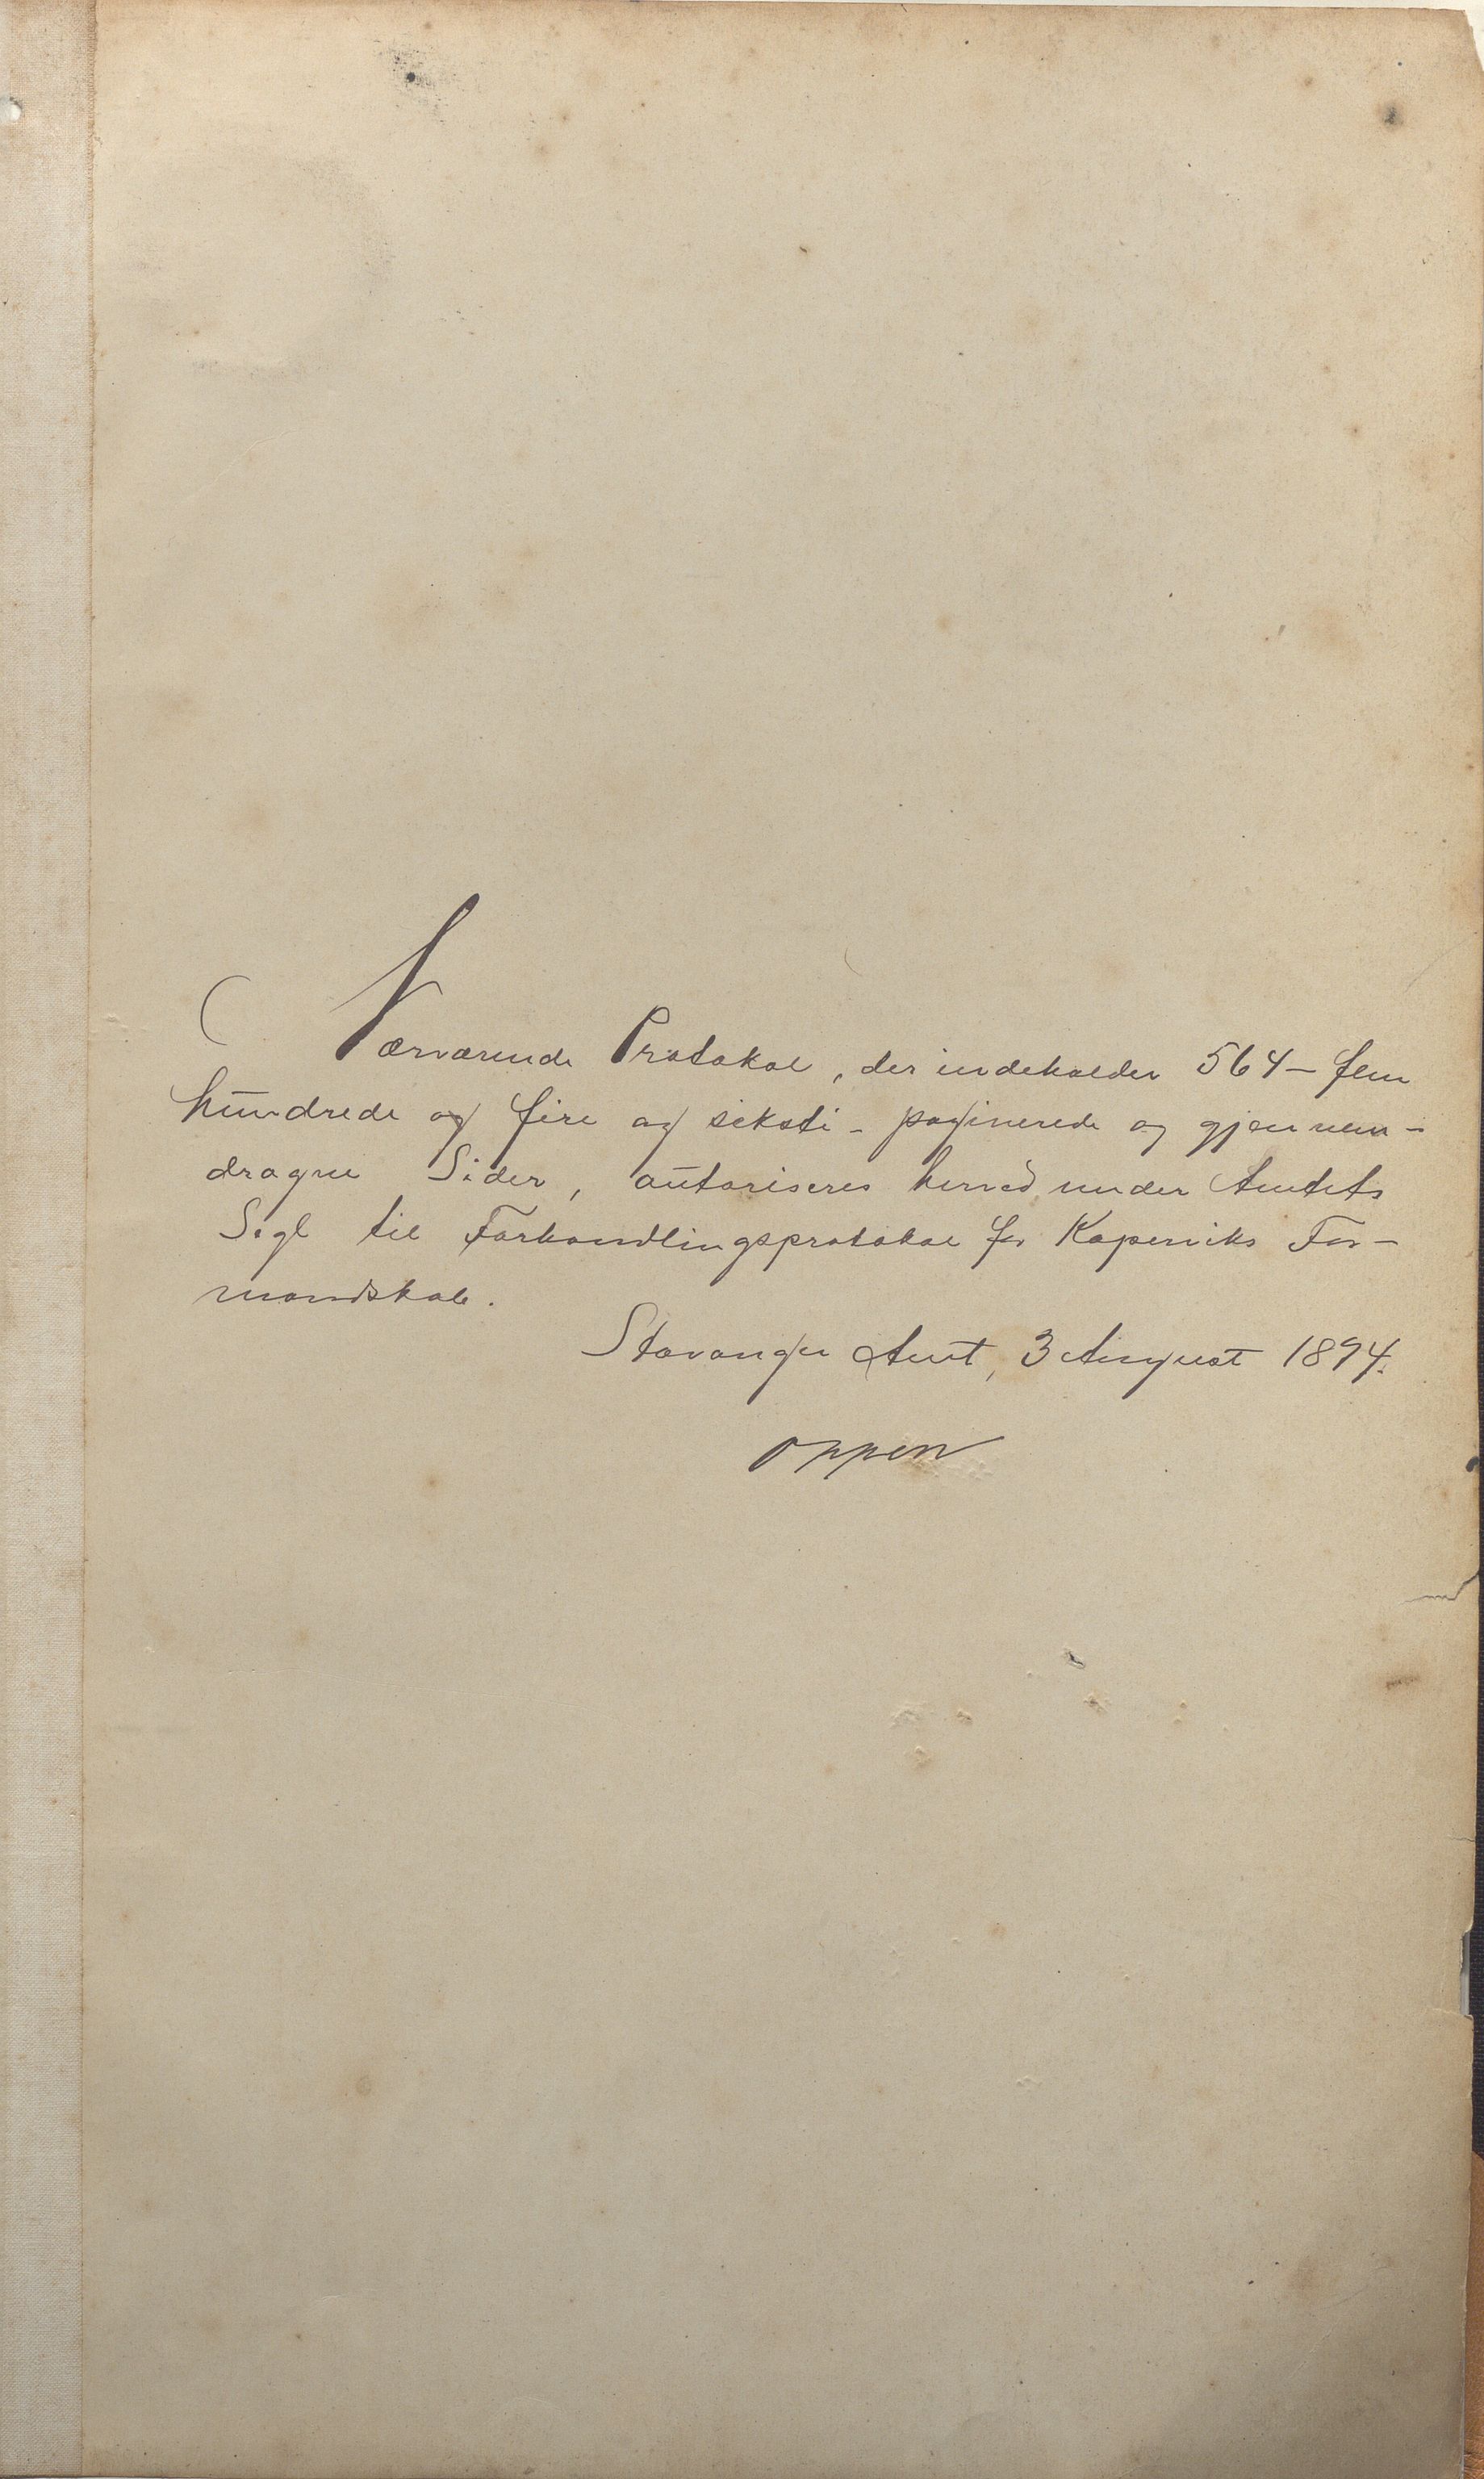 Nærværende Protokol, der indeholder 564 – fem
hundrede og fire og seksti – paginerede og gjennem-
dragne Sider, autoriseres herved under Amtets
Segl til Forhandlingsprotokol for Koperviks For-
mandskab.
Stavanger Amt, 3 August 1894.
Oppen